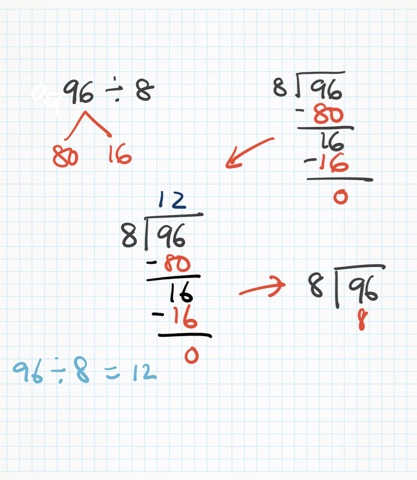 96 ÷ 8
80 16
8 96
- 80
16
- 16
0
12
8 96
- 80
16
- 16
0
8 96
8
96 ÷ 8 = 12